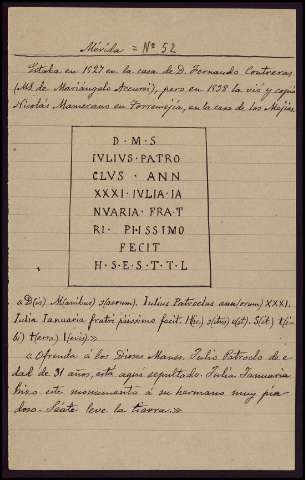 Mérida = Nº 52
Estaba en 1527 en la casa de D. Fernando Contreras
(MS. de Mariángelo Accursi), pero en 1538 la vió y copió
Nicolás Mamerano en Torremejía, en la casa de los Mejías
D · M · S
IVLIVS · PATRO
CLVS · ANN
XXXI · IVLIA · IA
NVARIA · FRAT
RI · PIISSIMO
FECIT
H · S · E · S · T · T · L
«D(is) M(anibus) s(acrum). Iulius Patroclus ann(orum) XXXI.
Iulia Ianuaria fratri piissimo fecit. H(ic) s(itus) e(st). S(it) t(i-
bi) t(erra) l(evis).»
«Ofrenda á los Dioses Manes. Julio Patroclo de e-
dad de 31 años, está aquí sepultado. Julia Januaria
hizo este monumento á su hermano muy pia-
doso. Séate leve la tierra.»